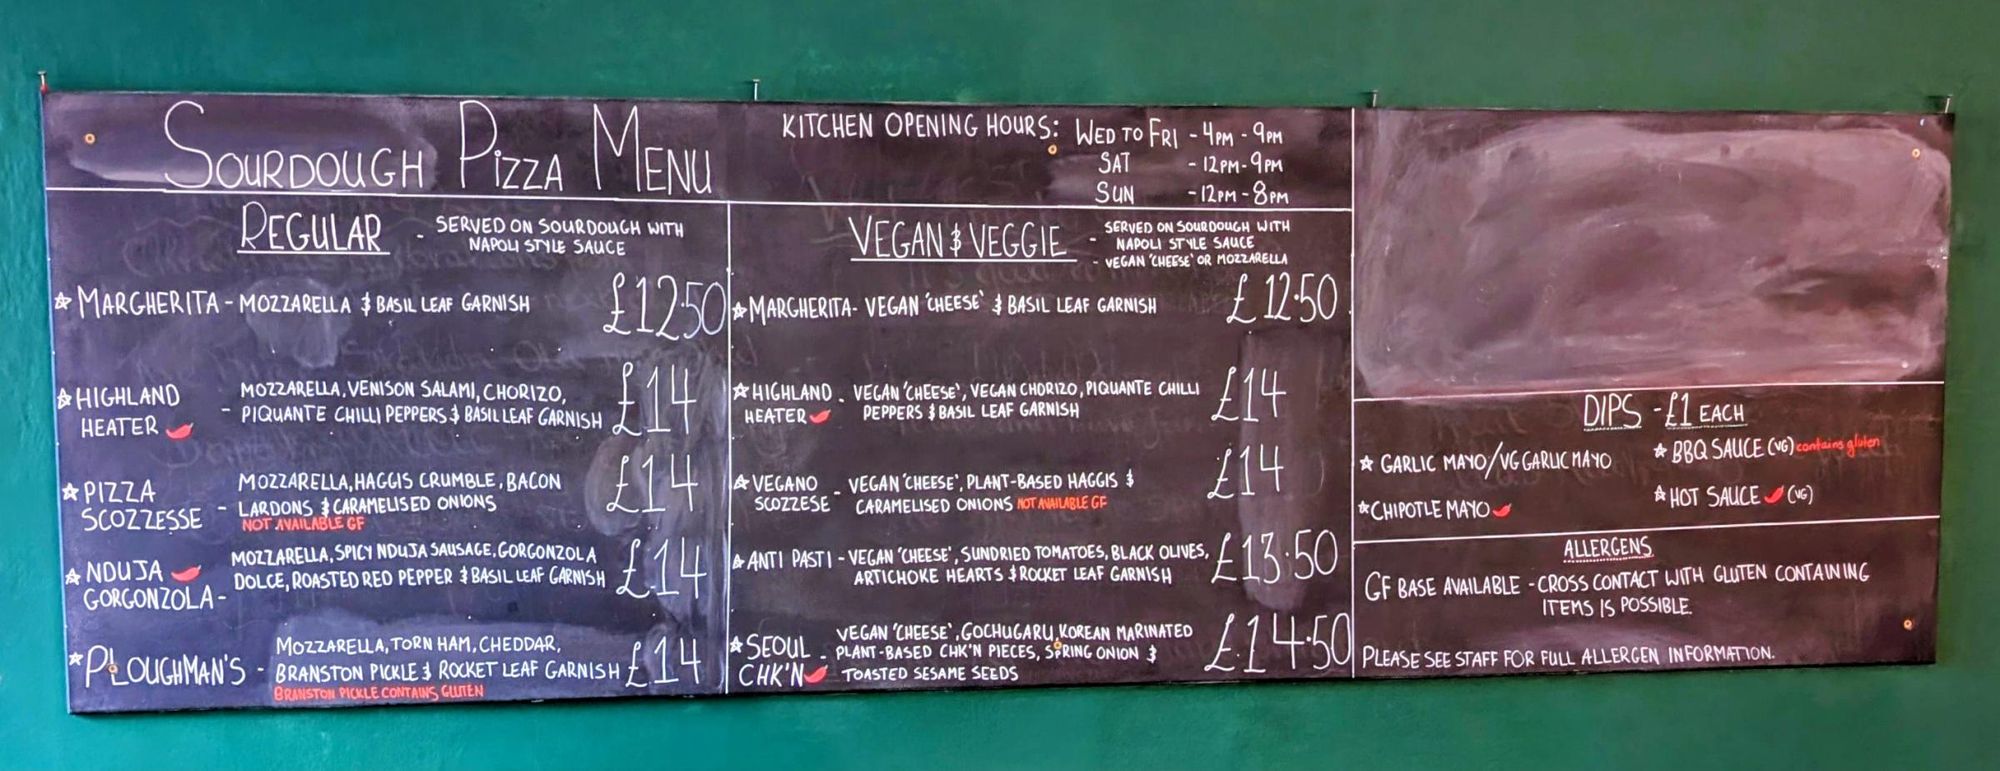 SOURDOUGH PIZZA MENU
KITCHEN OPENING HOURS: WED TO FRI - 4PM - 9PM
SAT - 12PM - 9PM
SUN - 12PM - 8PM
REGULAR - SERVED ON SOURDOUGH WITH
NAPOLI STYLE SAUCE
☆ MARGHERITA - MOZZARELLA & BASIL LEAF GARNISH £12.50
☆ HIGHLAND
HEATER
- MOZZARELLA, VENISON SALAMI, CHORIZO,
PIQUANTE CHILLI PEPPERS & BASIL LEAF GARNISH £14
☆ PIZZA
SCOZZESSE
- MOZZARELLA, HAGGIS CRUMBLE, BACON
LARDONS & CARAMELISED ONIONS £14
NOT AVAILABLE GF
☆ NDUJA
GORGONZOLA -
MOZZARELLA, SPICY NDUJA SAUSAGE, GORGONZOLA
DOLCE, ROASTED RED PEPPER & BASIL LEAF GARNISH £14
☆ PLOUGHMAN'S -
MOZZARELLA, TORN HAM, CHEDDAR,
BRANSTON PICKLE & ROCKET LEAF GARNISH £14
BRANSTON PICKLE CONTAINS GLUTEN
VEGAN & VEGGIE - SERVED ON SOURDOUGH WITH
NAPOLI STYLE SAUCE
- VEGAN 'CHEESE' OR MOZZARELLA
☆ MARGHERITA - VEGAN 'CHEESE' & BASIL LEAF GARNISH £12.50
☆ HIGHLAND
HEATER
- VEGAN 'CHEESE', VEGAN CHORIZO, PIQUANTE CHILLI
PEPPERS & BASIL LEAF GARNISH £14
☆ VEGANO
SCOZZESE
- VEGAN 'CHEESE', PLANT-BASED HAGGIS &
CARAMELISED ONIONS NOT AVAILABLE GF £14
☆ ANTI PASTI - VEGAN 'CHEESE', SUNDRIED TOMATOES, BLACK OLIVES,
ARTICHOKE HEARTS & ROCKET LEAF GARNISH £13.50
☆ SEOUL
CHK'N
- VEGAN 'CHEESE', GOCHUGARU, KOREAN MARINATED
PLANT-BASED CHK'N PIECES, SPRING ONION &
TOASTED SESAME SEEDS £14.50
DIPS - £1 EACH
☆ GARLIC MAYO/VG GARLIC MAYO
☆ BBQ SAUCE (VG) contains gluten
☆ CHIPOTLE MAYO
☆ HOT SAUCE (VG)
ALLERGENS
GF BASE AVAILABLE - CROSS CONTACT WITH GLUTEN CONTAINING
ITEMS IS POSSIBLE.
PLEASE SEE STAFF FOR FULL ALLERGEN INFORMATION.